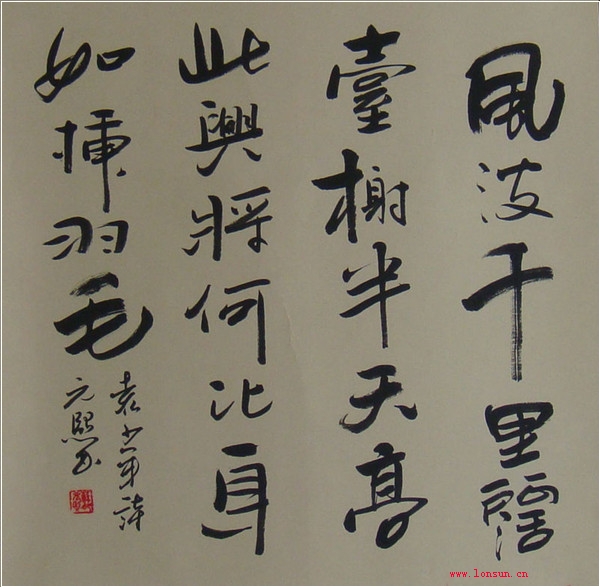 風波千里闊
臺榭半天高
此興將何比身
如插羽毛
袁少年詩
元熙書
www.lonsun.cn